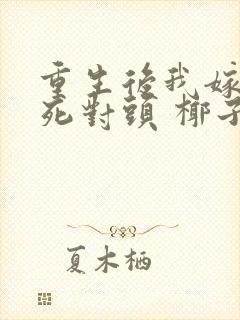 重生後我嫁
死對頭 椰子
夏木栖